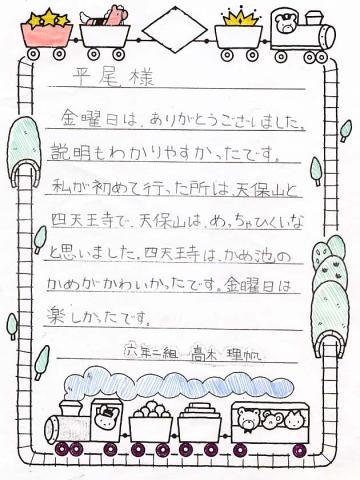 平尾様
金曜日は、ありがとうございました。
説明もわかりやすかったです。
私が初めて行った所は、天保山と
四天王寺で、天保山は、めっちゃひくいな
と思いました。四天王寺は、かめ池の
かめがかわいかったです。金曜日は
楽しかったです。
六年二組 高木 理帆